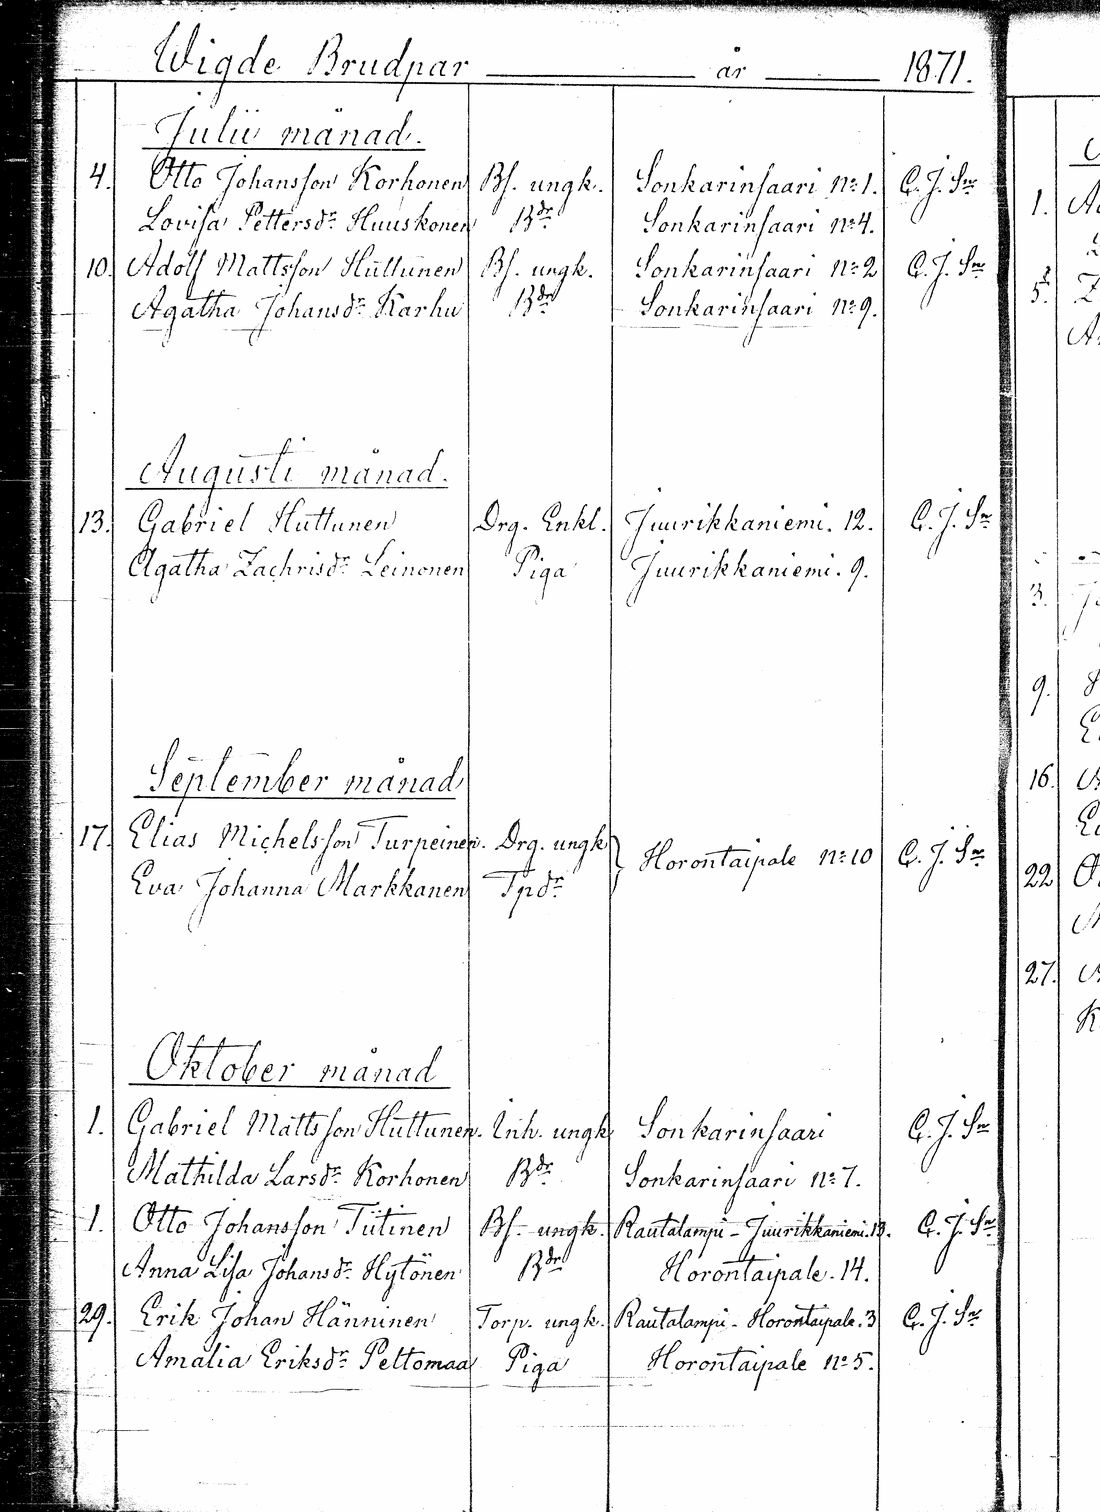 Wigde Brudpar år 1871.
Julii månad.
4. Otto Johansson Korhonen Bs. ungk. Sonkarinsaari No 1. C. J. Snr
Lovisa Pettersdr Huuskonen Bdr Sonkarinsaari No 4.
10. Adolf Mattsson Huttunen Bs. ungk. Sonkarinsaari No 2 C. J. Snr
Agatha Johansdr Karhu Bdr Sonkarinsaari No 9.
Augusti månad.
13. Gabriel Huttunen Drg. Enkl. Juurikkaniemi. 12. C. J. Snr
Agatha Zachrisdr Leinonen Piga Juurikkaniemi. 9.
September månad
17. Elias Michelsson Turpeinen. Drg. ungk } Horontaipale No 10 C. J. Snr
Eva Johanna Markkanen Tpdr
Oktober månad
1. Gabriel Mattsson Huttunen. Inh. ungk Sonkarinsaari C. J. Snr
Mathilda Larsdr Korhonen Bdr Sonkarinsaari No 7.
1. Otto Johansson Tiitinen Bs. ungk. Rautalampi - Juurikkaniemi. 13. C. J. Snr
Anna Lisa Johansdr Hytönen Bdr Horontaipale. 14.
29. Erik Johan Hänninen Torp. ungk. Rautalampi - Horontaipale. 3 C. J. Snr
Amalia Eriksdr Peltomaa Piga Horontaipale No 5.
1.
5.
3.
9.
16.
22
27.